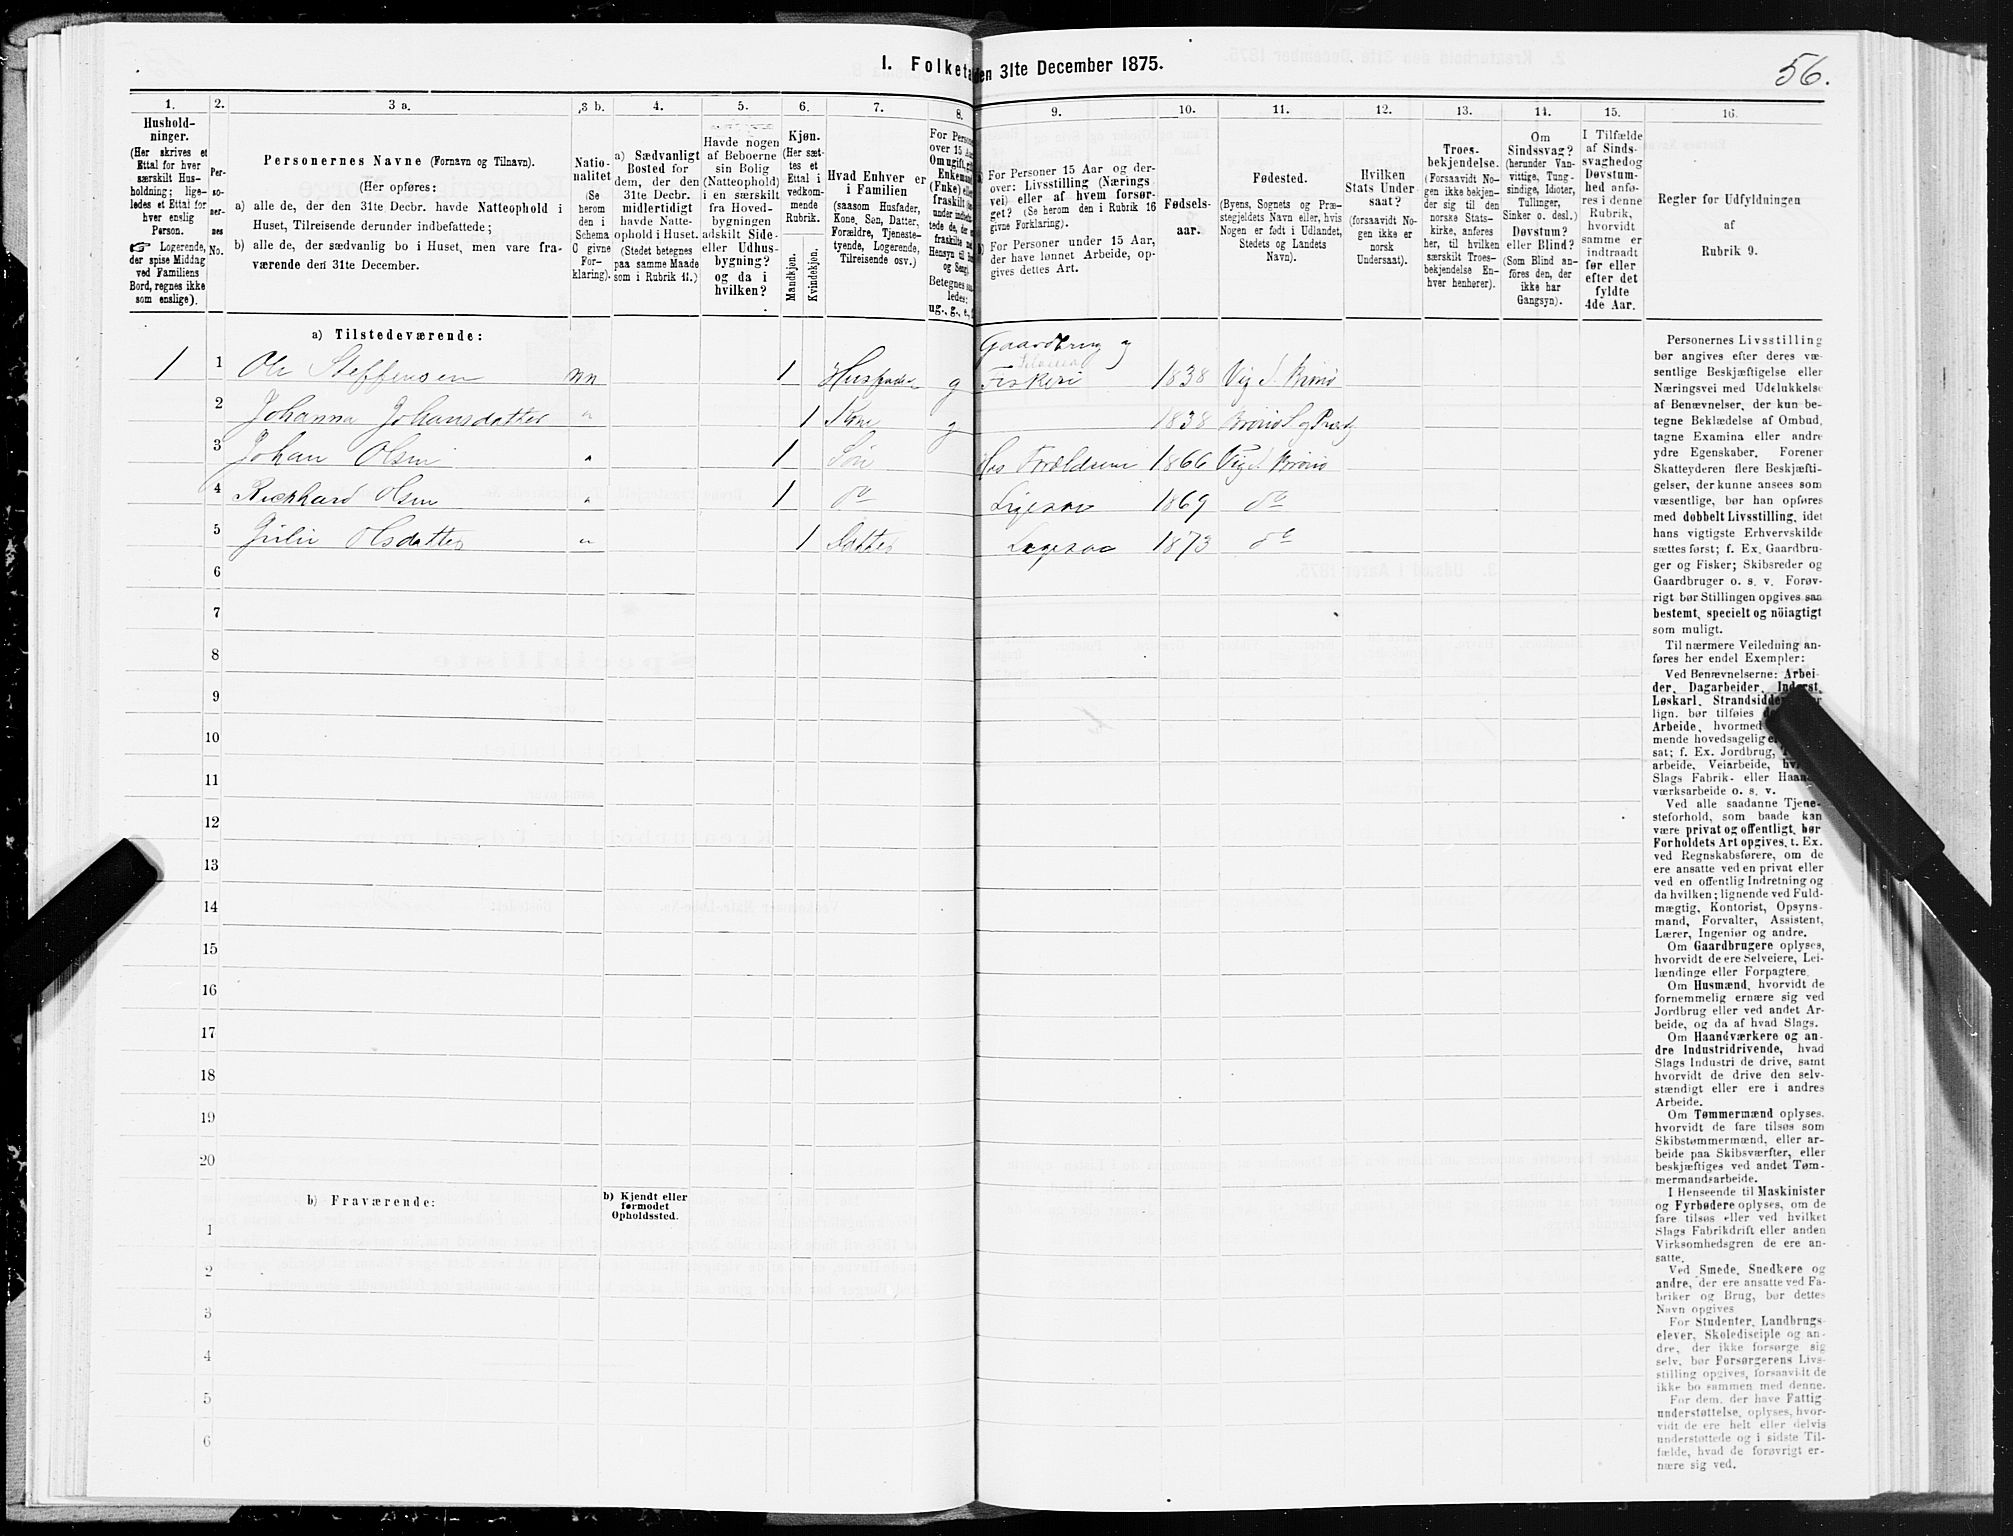 56.
I. Folketa
den 31te December 1875.
1.
2.
3 a.
3 b.
4.
5.
6.
7.
8.
9.
10.
11.
12.
13.
14.
15.
16.
Hushold-
ninger.
(Her skrives et
Ettal for hver
særskilt Hus-
holdning; lige-
ledes et Ettal for
hver enslig
Person.
☞ Logerende,
der spise Middag
ved Familiens
Bord, regnes ikke
som enslige).
Per-
so-
ner-
nes
No.
Personernes Navne (Fornavn og Tilnavn).
(Her opføres:
a) alle de, der den 31te Decbr. havde Natteophold i
Huset, Tilreisende derunder indbefattede;
b) alle de, der sædvanlig bo i Huset, men vare fra-
værende den 31te December.
Natio-
nalitet
(Se
herom
den i
Schema
C givne
For-
klaring).
a) Sædvanligt
Bosted for
dem, der den
31te Decbr.
midlertidigt
havde Natte-
ophold i Huset.
(Stedet betegnes
paa samme Maade
som i Rubrik 11.)
Havde nogen
af Beboerne
sin Bolig
(Natteophold)
i en særskilt
fra Hoved-
bygningen
adskilt Side-
eller Udhus-
bygning?
og da i
hvilken?
Kjøn.
(Her sæt-
tes et
Ettal i
vedkom-
mende
Rubrik.
Mandkjøn.
Kvindekjøn.
Hvad Enhver er
i Familien
(saasom Husfader,
Kone, Søn, Datter,
Forældre, Tjeneste-
tyende, Logerende,
Tilreisende osv.)
For Person
over 15 Aar
Om ugift, gift
Enkemand
(Enke) eller
fraskilt
og Seng
Betegnes saa-
ledes:
ug., g., e.,
For Personer 15 Aar og der-
over: Livsstilling (Nærings
vei) eller af hvem forsør-
get? (Se herom den i Rubrik 16
givne Forklaring).
For Personer under 15 Aar,
der have lønnet Arbeide, op-
gives dettes Art.
Fødsels-
aar.
Fødested.
(Byens, Sognets og Præ-
stegjeldets Navn eller, hvis
Nogen er født i Udlandet,
Stedets og Landets
Navn).
Hvilken
Stats Under
saat?
(forsaavidt No-
gen ikke er
norsk
Undersaat).
Troes-
bekjendelse.
(Forsaavidt No-
gen ikke bekjen-
der sig til den
norske Stats-
kirke, anføres
her, til hvilken
særskilt Troes-
bekjendelse En-
hver henhører).
Om
Sindssvag?
(herunder Van-
vittige, Tung-
sindige, Idioter,
Tullinger,
Sinker o. desl.)
Døvstum?
eller Blind?
(Som Blind an-
føres den, der
ikke har
Gangsyn).
I Tilfælde
af Sinds-
svaghed og
Døvstum-
hed anfø-
res i denne
Rubrik,
hvorvidt
samme er
indtraadt
før eller
efter det
fyldte
4de Aar.
Regler for Udfyldningen
af
Rubrik 9.
a) Tilstedeværende:
Gaardbrug og
1 1 Ole Steffensen nn 1 Husfader g Fiskeri 1838 Vig S. Brønø
2 Johanna Johansdatter " 1 Kone g 1838 Brønø S og Præstg
3 Johan Olsen " 1 Søn Hos Forældrene 1866 Vig S. Brønø
4 Rickhard Olsen " 1 do Ligesaa 1869 do
5 Julie Olsdatter " 1 Datter Ligesaa 1873 do
6
7
8
9
10
11
12
13
14
15
16
17
18
19
20
b) Fraværende:
b) Kjendt eller
formodet
Opholdssted.
1
2
3
4
5
6
Personernes Livsstilling
bør angives efter deres væ-
sentlige Beskjæftigelse eller
Næringsvei med Udelukkelse
af Benævnelser, der kun be-
tegne Beklædelse af Ombud,
tagne Examina eller andre
ydre Egenskaber. Forener
Skatteyderen flere Beskjæfti-
gelser, der kunne ansees som
væsentlige, bør han opføres
med dobbelt Livsstilling, idet
hans vigtigste Erhvervskilde
sættes først; f. Ex. Gaardbru-
ger og Fisker; Skibsreder og
Gaardbruger o. s. v. Forøv-
rigt bør Stillingen opgives saa
bestemt, specielt og nöiagtigt
som muligt.
Til nærmere Veiledning an-
føres her endel Exempler:
Ved Benævnelserne: Arbei-
der, Dagarbeider, Inderst,
Løskarl, Strandsidder
lign. bør tilføies
Arbeide, hvormed
mende hovedsagelig
sat; f. Ex. Jordbrug,
arbeide, Veiarbeide,
Slags Fabrik- eller Haand-
værksarbeide o. s. v.
Ved alle saadanne Tjene-
steforhold, som baade kan
være privat og offentligt, bør
Forholdets Art opgives, t. Ex.
ved Regnskabsførere, om de
ere ansatte ved en privat eller
ved en offentlig Indretning og
da hvilken; lignende ved Fuld-
mægtig, Kontorist, Opsyns-
mand, Forvalter, Assistent,
Lærer, Ingeniør og andre.
Om Gaardbrugere oplyses,
hvorvidt de ere Selveiere, Lei-
lændinge eller Forpagtere.
Om Husmænd, hvorvidt de
fornemmelig ernære sig ved
Jordbrug eller ved andet Ar-
beide, og da af hvad Slags.
Om Haandværkere og an-
dre Industridrivende, hvad
Slags Industri de drive, samt
hvorvidt de drive den selv-
stændigt eller ere i andres
Arbeide.
Om Tømmermænd oplyses,
hvorvidt de fare tilsøs som
Skibstømmermænd, eller ar-
beide paa Skibsværfter, eller
beskjæftiges ved andet Tøm-
mermandsarbeide.
I Henseende til Maskinister
og Fyrbødere oplyses, om de
fare tilsøs eller ved hvilket
Slags Fabrikdrift eller anden
Virksomhedsgren de ere an-
satte.
Ved Smede, Snedkere og
andre, der ere ansatte ved Fa-
briker og Brug, bør dettes
Navn opgives
For Studenter, Landbrugs-
elever, Skoledisciple og an-
dre, der ikke forsørge sig
selv, bør Forsørgerens Livs-
stilling opgives, forsaavidt de
ikke bo sammen med denne.
For dem, der have Fattig
understøttelse, oplyses, hvor-
vidt de ere helt eller delvis
understøttede og i sidste Til-
fælde, hvad de forøvrigt er-
nære sig ved.